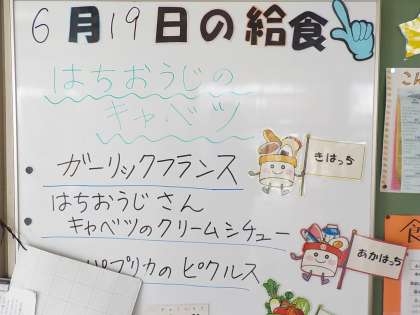 6月19日の給食
はちおうじの
キャベツ
ガーリックフランス
きはっち
はちおうじさん
キャベツのクリームシチュー
あかはっち
パプリカのピクルス
こん
食